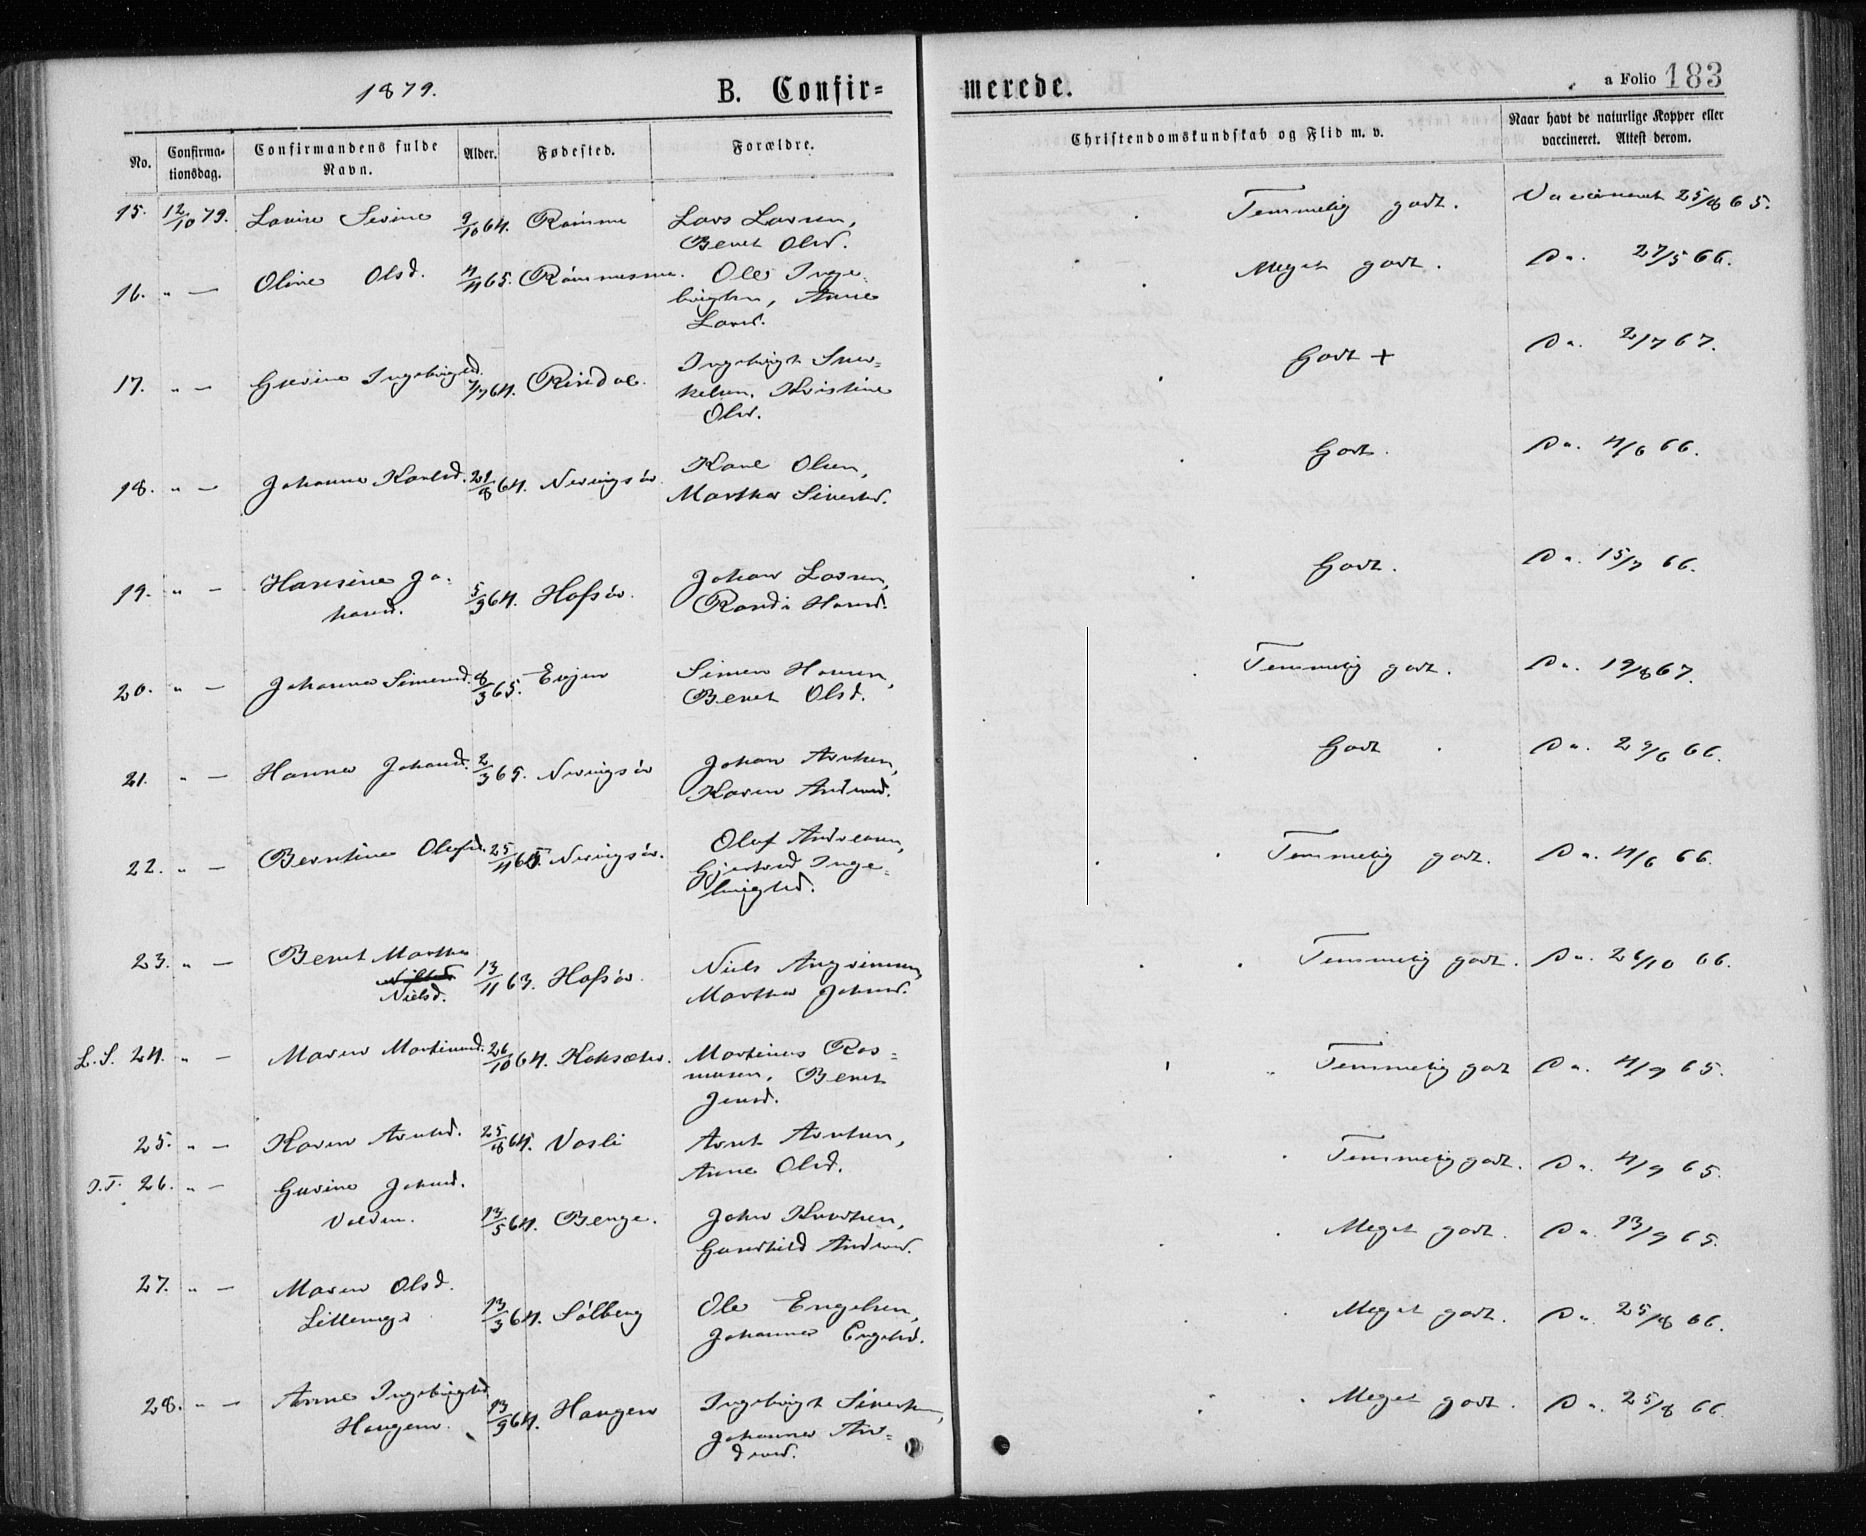 1879.
B. Confir=
merede.
a Folio 183
No.
Confirma-
tionsdag.
Confirmandens fulde
Navn.
Alder.
Fødested.
Forældre.
Christendomskundskab og Flid m. v.
Naar havt de naturlige Kopper eller
vaccineret. Attest derom.
15. 12/10 79. Lavine Sivine 9/10 64. Rømme Lars Larsen, Temmelig godt. Vaccineret 25/8 65.
Beret Olsd.
16. " — Oline Olsd. 4/4 65. Rømmesmo. Ole Inge- Meget godt. Do. 27/5 66.
brigtsen, Anne
Larsd.
17. " — Gurine Ingebrigtsd. 7/7 64. Rindal. Ingebrigt Sner- Godt + Do. 2/7 67.
kelsen, Kristine
Olsd.
18. " — Johanna Karlsd. 21/8 64. Nerviksør. Karl Olsen, Godt. Do. 4/6 66.
Martha Sivertsd.
19. " — Hansine Jo- 5/3 64. Hofsør. Johan Larsen, Godt. Do. 15/7 66.
hansd. Randi Hansd.
20. " — Johanna Simensd. 8/3 65. Evjen Simen Hansen, Temmelig godt. Do. 19/8 67.
Beret Olsd.
21. " — Hanna Johansd. 2/3 65. Johan Arntsen, Godt Do. 29/6 66.
Karen Andersd.
22. " — Berntine Olafsd. 25/4 65. Olaf Andreasen, Temmelig godt. Do. 4/6 66.
Gjertrud Inge-
brigtsd.
23. " — Beret Martha 13/11 63. Hofsør. Niels Temmelig godt. Do. 26/10 66.
Nielsd. Martha Johnsd.
L.S. 24. " — Maren Martinusd. 26/10 64. Martinus Ras- Temmelig godt Do. 4/9 65.
musen, Beret
Jensd.
25. " — Karen Arntsd. 25/8 64. Vasli Arnt Arntsen, Temmelig godt. Do. 4/9 65.
Anne Olsd.
I.T. 26. " — Gurine Johnsd.
Volden. 13/5 64. Benge. John Knudsen, Meget godt. Do. 13/9 65.
Gunhild Andersd.
27. " — Maren Olsd.
13/3 64. Sølberg Ole Engelsen, Meget godt. Do. 25/8 66.
Johanna Engelsd.
28. " — Anne Ingebrigtsd.
Haugen. 13/9 64. Haugen Ingebrigt Sivertsen, Meget godt. Do. 25/8 66.
Johanna An-
dersd.